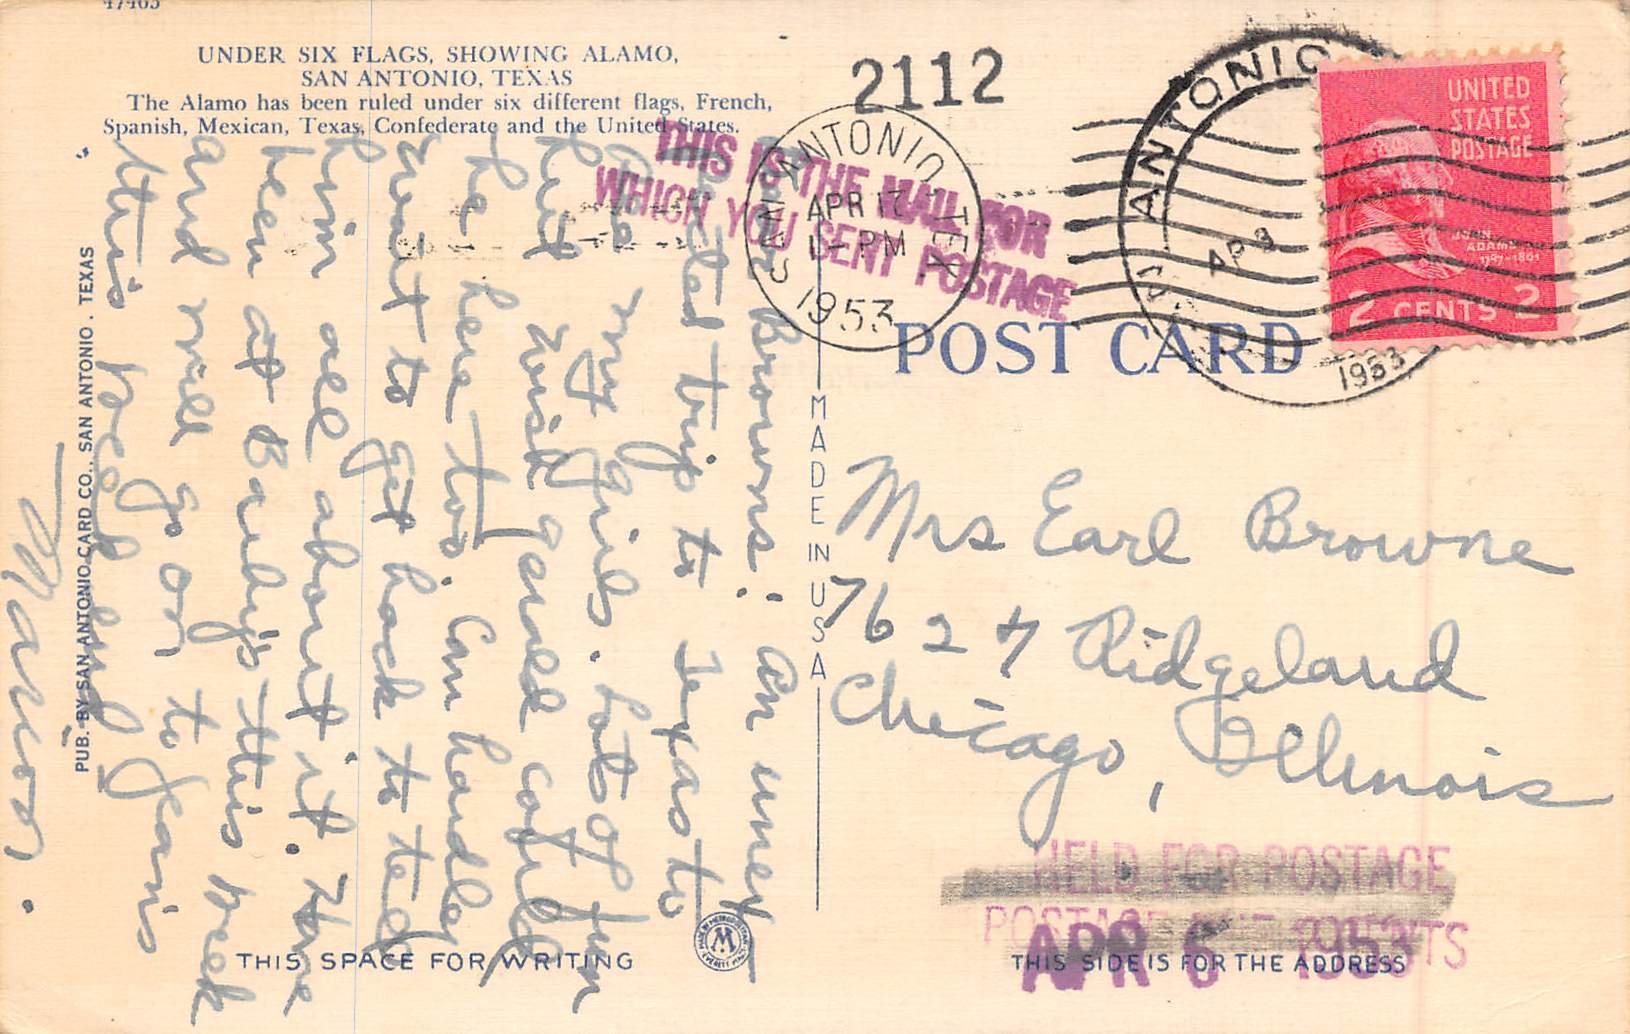 47405
UNDER SIX FLAGS, SHOWING ALAMO,
SAN ANTONIO, TEXAS
The Alamo has been ruled under six different flags, French,
Spanish, Mexican, Texas, Confederate and the United States.
2112
THIS IS THE MAIL FOR
WHICH YOU SENT POSTAGE
SAN ANTONIO TEX
APR 17
1-PM
1953
ANTONIO
APR
1953
UNITED
STATES
POSTAGE
JOHN
ADAMS
1797-1801
2 CENTS 2
POST CARD
MADE IN USA
PUB. BY SAN ANTONIO CARD CO., SAN ANTONIO. TEXAS
Dear Browns: An unex-
pected trip to Texas to
see my girls. Lots of fun
but wish Gerald could
be here too. Can hardly
wait to get back to tell
him all about it. Have
been at Barby's this week
and will go on to Jean's
this week end.
Marion.
Mrs Earl Browne
7627 Ridgeland
Chicago, Illinois
HELD FOR POSTAGE
POSTAGE DUE CENTS
APR 6 1953
THIS SPACE FOR WRITING
THIS SIDE IS FOR THE ADDRESS